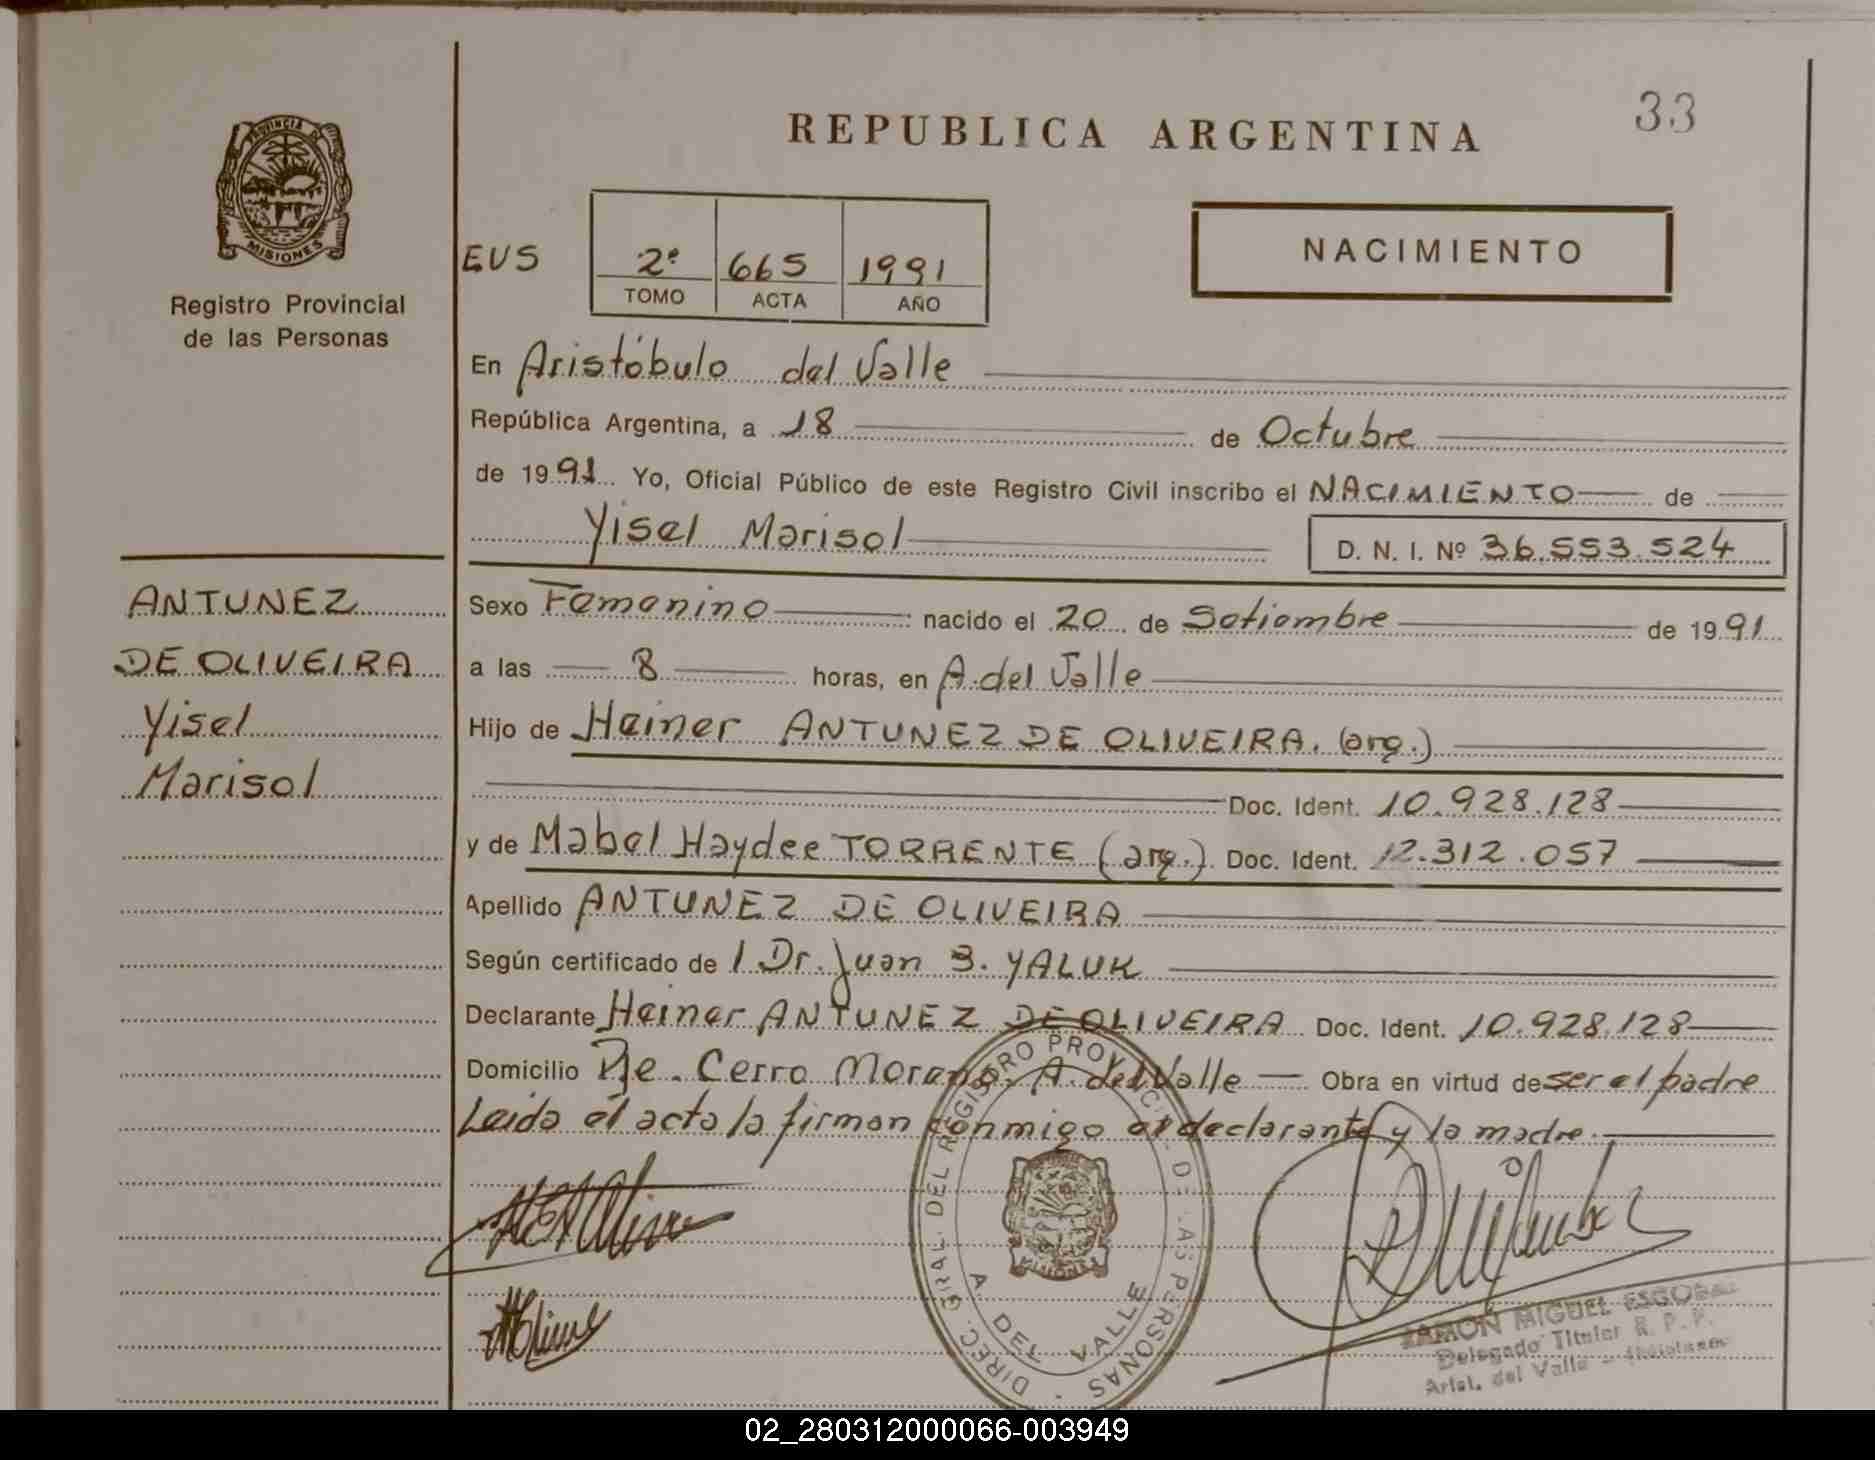 REPUBLICA ARGENTINA
33
PROVINCIA DE
MISIONES
Registro Provincial
de las Personas
EUS
2º 665 1991
TOMO ACTA AÑO
NACIMIENTO
En Aristóbulo del Valle
República Argentina, a 18 de Octubre
de 1991 Yo, Oficial Público de este Registro Civil inscribo el NACIMIENTO de
Yisel Marisol D. N. I. Nº 36.553.524
ANTUNEZ
DE OLIVEIRA
Yisel
Marisol
Sexo Femenino nacido el 20 de Setiembre de 1991
a las 8 horas, en A. del Valle
Hijo de Heiner ANTUNEZ DE OLIVEIRA. (arg.)
Doc. Ident. 10.928.128
y de Mabel Haydee TORRENTE (arg.) Doc. Ident. 12.312.057
Apellido ANTUNEZ DE OLIVEIRA
Según certificado de l Dr. Juan B. YALUK
Declarante Heiner ANTUNEZ DE OLIVEIRA Doc. Ident. 10.928.128
Domicilio Pje. Cerro Moreno. A. del Valle Obra en virtud de ser el padre
Leida el acta la firman conmigo el declarante y la madre.
DIREC. GRAL. DEL REGISTRO PROVINCIAL DE LAS PERSONAS
MISIONES
A. DEL VALLE
RAMON MIGUEL ESCOBAR
Delegado Titular R. P. P.
Arist. del Valle - Misiones
02_280312000066-003949